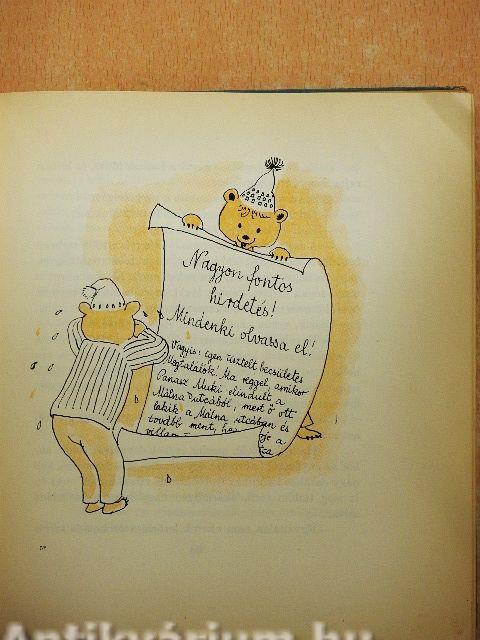 Nagyon fontos
hirdetés!
Mindenki olvassa el!
Vagyis: igen tisztelt becsületes
Megtalálók! Ma reggel, amikor
Panasz Muki elindult a
Málna utcából, mert ő ott
lakik a Málna utcában és
tovább ment,
a
Antikvárium.hu